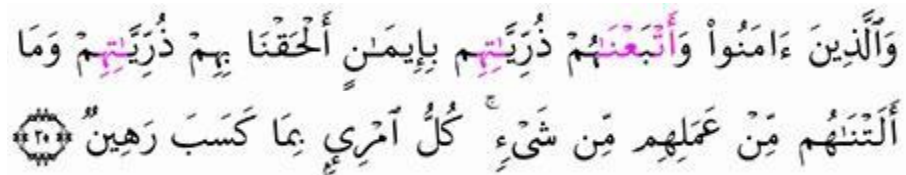 وَٱلَّذِينَ ءَامَنُوا۟ وَأَتْبَعْنَـٰهُمْ ذُرِّيَّـٰتِهِم بِإِيمَـٰنٍ أَلْحَقْنَا بِهِمْ ذُرِّيَّـٰتِهِمْ وَمَا
أَلَتْنَـٰهُم مِّنْ عَمَلِهِم مِّن شَىْءٍ ۚ كُلُّ ٱمْرِئٍ بِمَا كَسَبَ رَهِينٌ